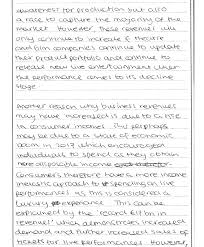 awareness for production but also
a race to capture the majority of the
market. However, these revenues will
only continue to increase if theatre
and film companies continue to update
their product portfolio and continue to
release new live entertainment when
the performance comes to its decline
stage.
Another reason why business revenues
may have increased is due to a rise
in consumer incomes. This perhaps
may be due to a state of economic
boom in 2013 which encouraged
individuals to spend as they obtain
more disposable income
Consumers therefore have a more income
elastic approach to spending on live
performances as this is considered a
luxury experience. This can be
explained by the record £1.1bn in
revenues which demonstrates increased
demand and further increased sales of
tickets for live performances. However,